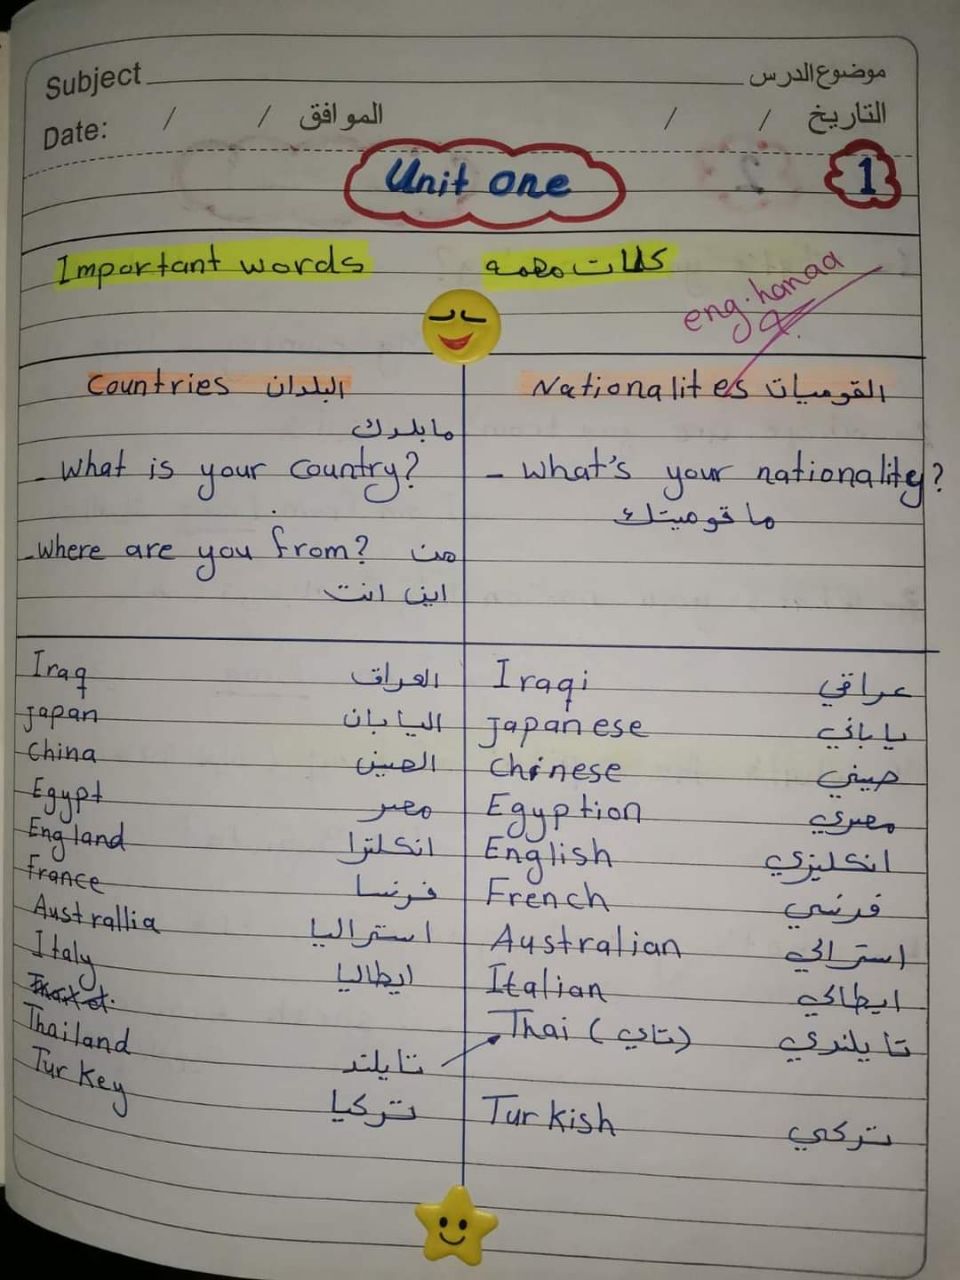 Subject موضوع الدرس
Date: / / الموافق / / التاريخ
Unit one 1
Important words كلمات مهمه
eng.hanaa
Countries البلدان
Nationalites القوميات
ما بلدك
- What is your country?
- What's your nationality?
ما قوميتك
- where are you from? من
اين انت
Iraq العراق Iraqi عراقي
Japan اليابان Japanese ياباني
China الصين Chinese صيني
Egypt مصر Egyption مصري
England انكلترا English انكليزي
France فرنسا French فرنسي
Australlia استراليا Australian استرالي
Italy ايطاليا Italian ايطالي
Thailand تايلند Thai (تاي) تايلندي
Turkey تركيا Turkish تركي